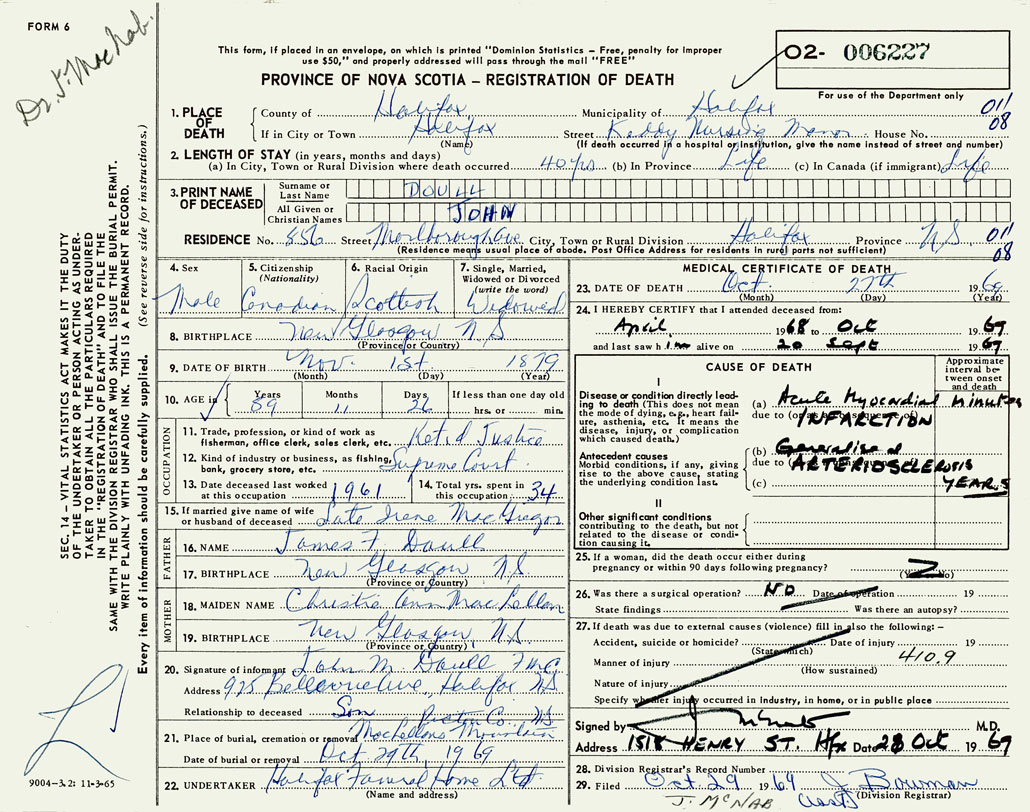 FORM 6
Dr. J. MacNab.
O2- 006227
For use of the Department only
This form, if placed in an envelope, on which is printed "Dominion Statistics – Free, penalty for improper
use $50," and properly addressed will pass through the mail "FREE"
PROVINCE OF NOVA SCOTIA – REGISTRATION OF DEATH
1. PLACE OF DEATH County of Halifax Municipality of Halifax 011
If in City or Town Halifax Street Keddy Nursing Manor House No. 08
(Name) (If death occurred in a hospital or institution, give the name instead of street and number)
2. LENGTH OF STAY (in years, months and days)
(a) In City, Town or Rural Division where death occurred 40 yrs. (b) In Province Life (c) In Canada (if immigrant) Life
3. PRINT NAME OF DECEASED
Surname or Last Name DOULL
All Given or Christian Names JOHN
RESIDENCE No. 856 Street Marlborough Ave City, Town or Rural Division Halifax Province N.S 011
(Residence means usual place of abode. Post Office Address for residents in rural parts not sufficient) 08
4. Sex Male
5. Citizenship (Nationality) Canadian
6. Racial Origin Scottish
7. Single, Married, Widowed or Divorced (write the word) Widowed
8. BIRTHPLACE New Glasgow N.S
(Province or Country)
9. DATE OF BIRTH Nov. 1st. 1879
(Month) (Day) (Year)
10. AGE in Years 89 Months 11 Days 26 If less than one day old hrs. or min.
OCCUPATION
11. Trade, profession, or kind of work as fisherman, office clerk, sales clerk, etc. Ret'd Justice
12. Kind of industry or business, as fishing, bank, grocery store, etc. Supreme Court.
13. Date deceased last worked at this occupation 1961
14. Total yrs. spent in this occupation 34
15. If married give name of wife or husband of deceased Late Irene MacGregor
FATHER
16. NAME James F. Doull
17. BIRTHPLACE New Glasgow N.S
(Province or Country)
MOTHER
18. MAIDEN NAME Christie Ann MacLellan
19. BIRTHPLACE New Glasgow, N.S
(Province or Country)
20. Signature of informant John M. Doull
Address 925 Bellevue Ave, Halifax N.S.
Relationship to deceased Son
Pictou Co. N.S.
21. Place of burial, cremation or removal MacLellans Mountain
Date of burial or removal Oct 29th, 1969
22. UNDERTAKER Halifax Funeral Home Ltd
(Name and address)
MEDICAL CERTIFICATE OF DEATH
23. DATE OF DEATH Oct. 27th 1969
(Month) (Day) (Year)
24. I HEREBY CERTIFY that I attended deceased from:
April 1968 to Oct 1969
and last saw him alive on 20 Sept 1969
CAUSE OF DEATH
Approximate interval between onset and death
I
Disease or condition directly leading to death (This does not mean the mode of dying, e.g., heart failure, asthenia, etc. It means the disease, injury, or complication which caused death.)
(a) Acute Myocardial INFARCTION minutes
due to (or as a consequence of)
Antecedent causes
Morbid conditions, if any, giving rise to the above cause, stating the underlying condition last.
(b) Generalised ARTERIOSCLEROSIS YEARS
due to (or as a consequence of)
(c)
II
Other significant conditions
contributing to the death, but not related to the disease or condition causing it.
25. If a woman, did the death occur either during
pregnancy or within 90 days following pregnancy?
(Yes or No)
26. Was there a surgical operation? NO Date of operation 19
State findings Was there an autopsy?
27. If death was due to external causes (violence) fill in also the following: –
Accident, suicide or homicide? Date of injury 19
(State which)
Manner of injury 410.9
(How sustained)
Nature of injury
Specify whether injury occurred in industry, in home, or in public place
Signed by J McNab M.D.
Address 1518 HENRY ST. Hfx Date 28 Oct 1969
28. Division Registrar's Record Number
29. Filed Oct 29 1969 J. Bowman
(Division Registrar)
J. MCNAB (Asst)
SEC. 14 – VITAL STATISTICS ACT MAKES IT THE DUTY
OF THE UNDERTAKER OR PERSON ACTING AS UNDER-
TAKER TO OBTAIN ALL THE PARTICULARS REQUIRED
IN THE "REGISTRATION OF DEATH" AND TO FILE THE
SAME WITH THE DIVISION REGISTRAR WHO SHALL ISSUE THE BURIAL PERMIT.
WRITE PLAINLY WITH UNFADING INK. THIS IS A PERMANENT RECORD.
Every item of information should be carefully supplied. (See reverse side for instructions.)
9004-3.2: 11-3-65